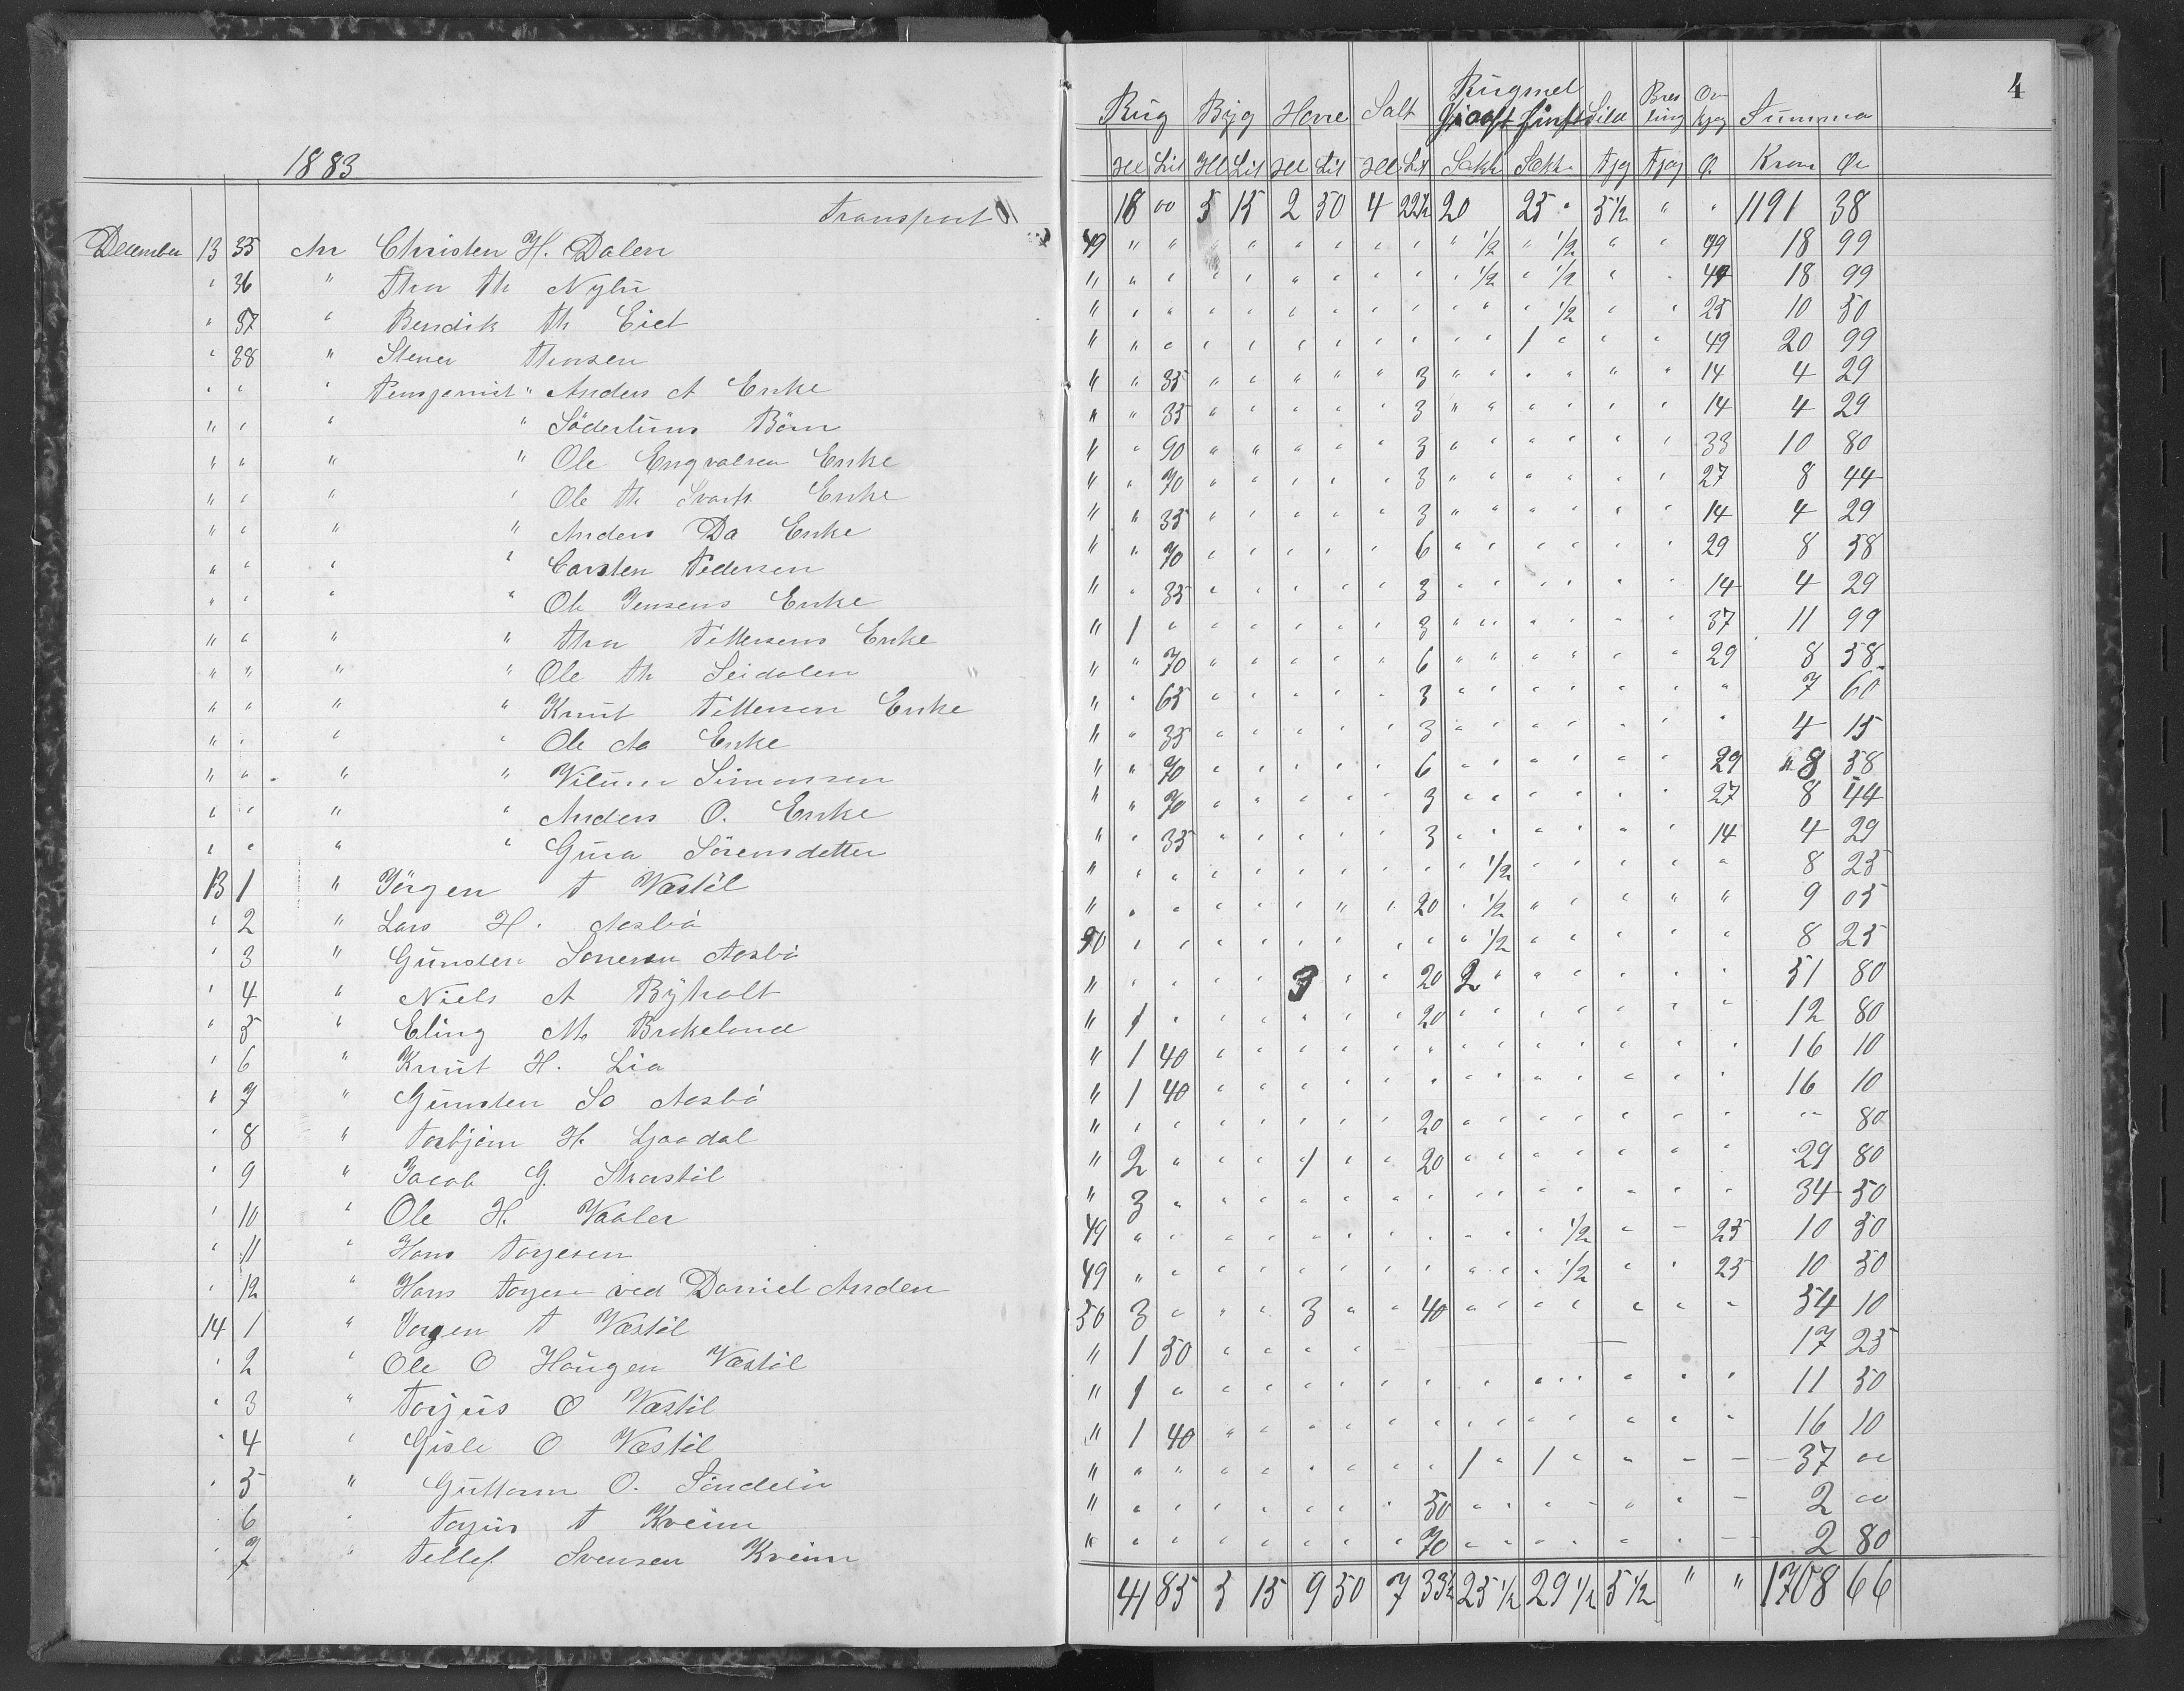 4
Rugmel
Rug Byg Havre Salt Groft fint Sild Bres ling Op kjøg Summa
1883
Hl Lit Hl Lit Hl Lit Hl Lit Sækk Sækk Kron Ør
Transport 18 00 5 15 2 50 4 22½ 20 25 " 5½ " " 1191 38
December 13 35 An Christen H. Dalen 49 " " " " " " " " " ½ " ½ " " 49 18 99
" 36 " Thor Th Nylu " " " " " " " " " " ½ " ½ " " 49 18 99
" 37 " Bendik Th Eiet " " " " " " " " " " " " ½ " " 25 10 50
" 38 " Stener Thorsen " " " " " " " " " " " 1 " " " 49 20 99
" " " Pensjonist " Anders A Enke " " 35 " " " " " 3 " " " " " " 14 4 29
" " " " Söderlunds Börn " " 35 " " " " " 3 " " " " " " 14 4 29
" " " " Ole Engvalsen Enke " " 90 " " " " " 3 " " " " " " 33 10 80
" " " " Ole Th Enke " " 70 " " " " " 3 " " " " " " 27 8 44
" " " " Anders Da Enke " " 35 " " " " " 3 " " " " " " 14 4 29
" " " " Carsten Pedersen " " 70 " " " " " 6 " " " " " " 29 8 58
" " " " Ole Jensens Enke " " 35 " " " " " 3 " " " " " " 14 4 29
" " " " Thor Tellefsens Enke " 1 " " " " " " 3 " " " " " " 37 11 99
" " " " Ole Th Seidalen " " 70 " " " " " 6 " " " " " " 29 8 58
" " " " Knut Tellefsen Enke " " 65 " " " " " 3 " " " " " " " 7 60
" " " " Ole Aa Enke " " 35 " " " " " 3 " " " " " " " 4 15
" " " " Simonsen " " 70 " " " " " 6 " " " " " " 29 8 58
" " " " Anders O. Enke " " 70 " " " " " 3 " " " " " " 27 8 44
" " " " Gura Sörensdetter " " 35 " " " " " 3 " " " " " " 14 4 29
13 1 " Jörgen T Væstöl " " " " " " " " " " ½ " " " " " 8 25
" 2 " Lars H. Aasbö " " " " " " " " 20 " ½ " " " " " 9 05
" 3 " Gunder Aasbö 50 " " " " " " " " " ½ " " " " " 8 25
" 4 " Niels A Ryholt " " " " " 3 " " 20 2 " " " " " " 51 80
" 5 " Eling M. Brokeland " 1 " " " " " " 20 " " " " " " " 12 80
" 6 " Knut H. Lia " 1 40 " " " " " " " " " " " " " 16 10
" 7 " Gunsten So Aasbö " 1 40 " " " " " " " " " " " " " 16 10
" 8 " Torbjörn H. Ljaadal " " " " " " " " 20 " " " " " " " " 80
" 9 " Jacob G. " 2 " " " 1 " " 20 " " " " " " " 29 80
" 10 " Ole H. Vaaler " 3 " " " " " " " " " " " " " " 34 50
" 11 " Hans Torjesen 49 " " " " " " " " " " " ½ " " 25 10 50
" 12 " Hans Torjese ved Daniel Anden 49 " " " " " " " " " " " ½ " " 25 10 50
14 1 " Jorgen T Væstöl 50 3 " " " 3 " " 40 " " " " " " " 54 10
" 2 " Ole O Haugen Væstöl " 1 50 " " " " " 17 25
" 3 " Torjus O Væstöl " 1 " " " " " " " " " " " " " " 11 50
" 4 " Gisle O Væstöl " 1 40 " " " " " " " " " " " " " 16 10
" 5 " Guttorm O. " " " " " " " " " 1 " 1 " " " " 37 00
" 6 " Torjus T Kveim " " " " " " " " 50 " " " " " " " 2 00
" 7 " Tellef Svensen Kveim " " " " " " " " 70 " " " " " " " 2 80
41 85 5 15 9 50 7 33½ 25½ 29½ 5½ " " 1708 66